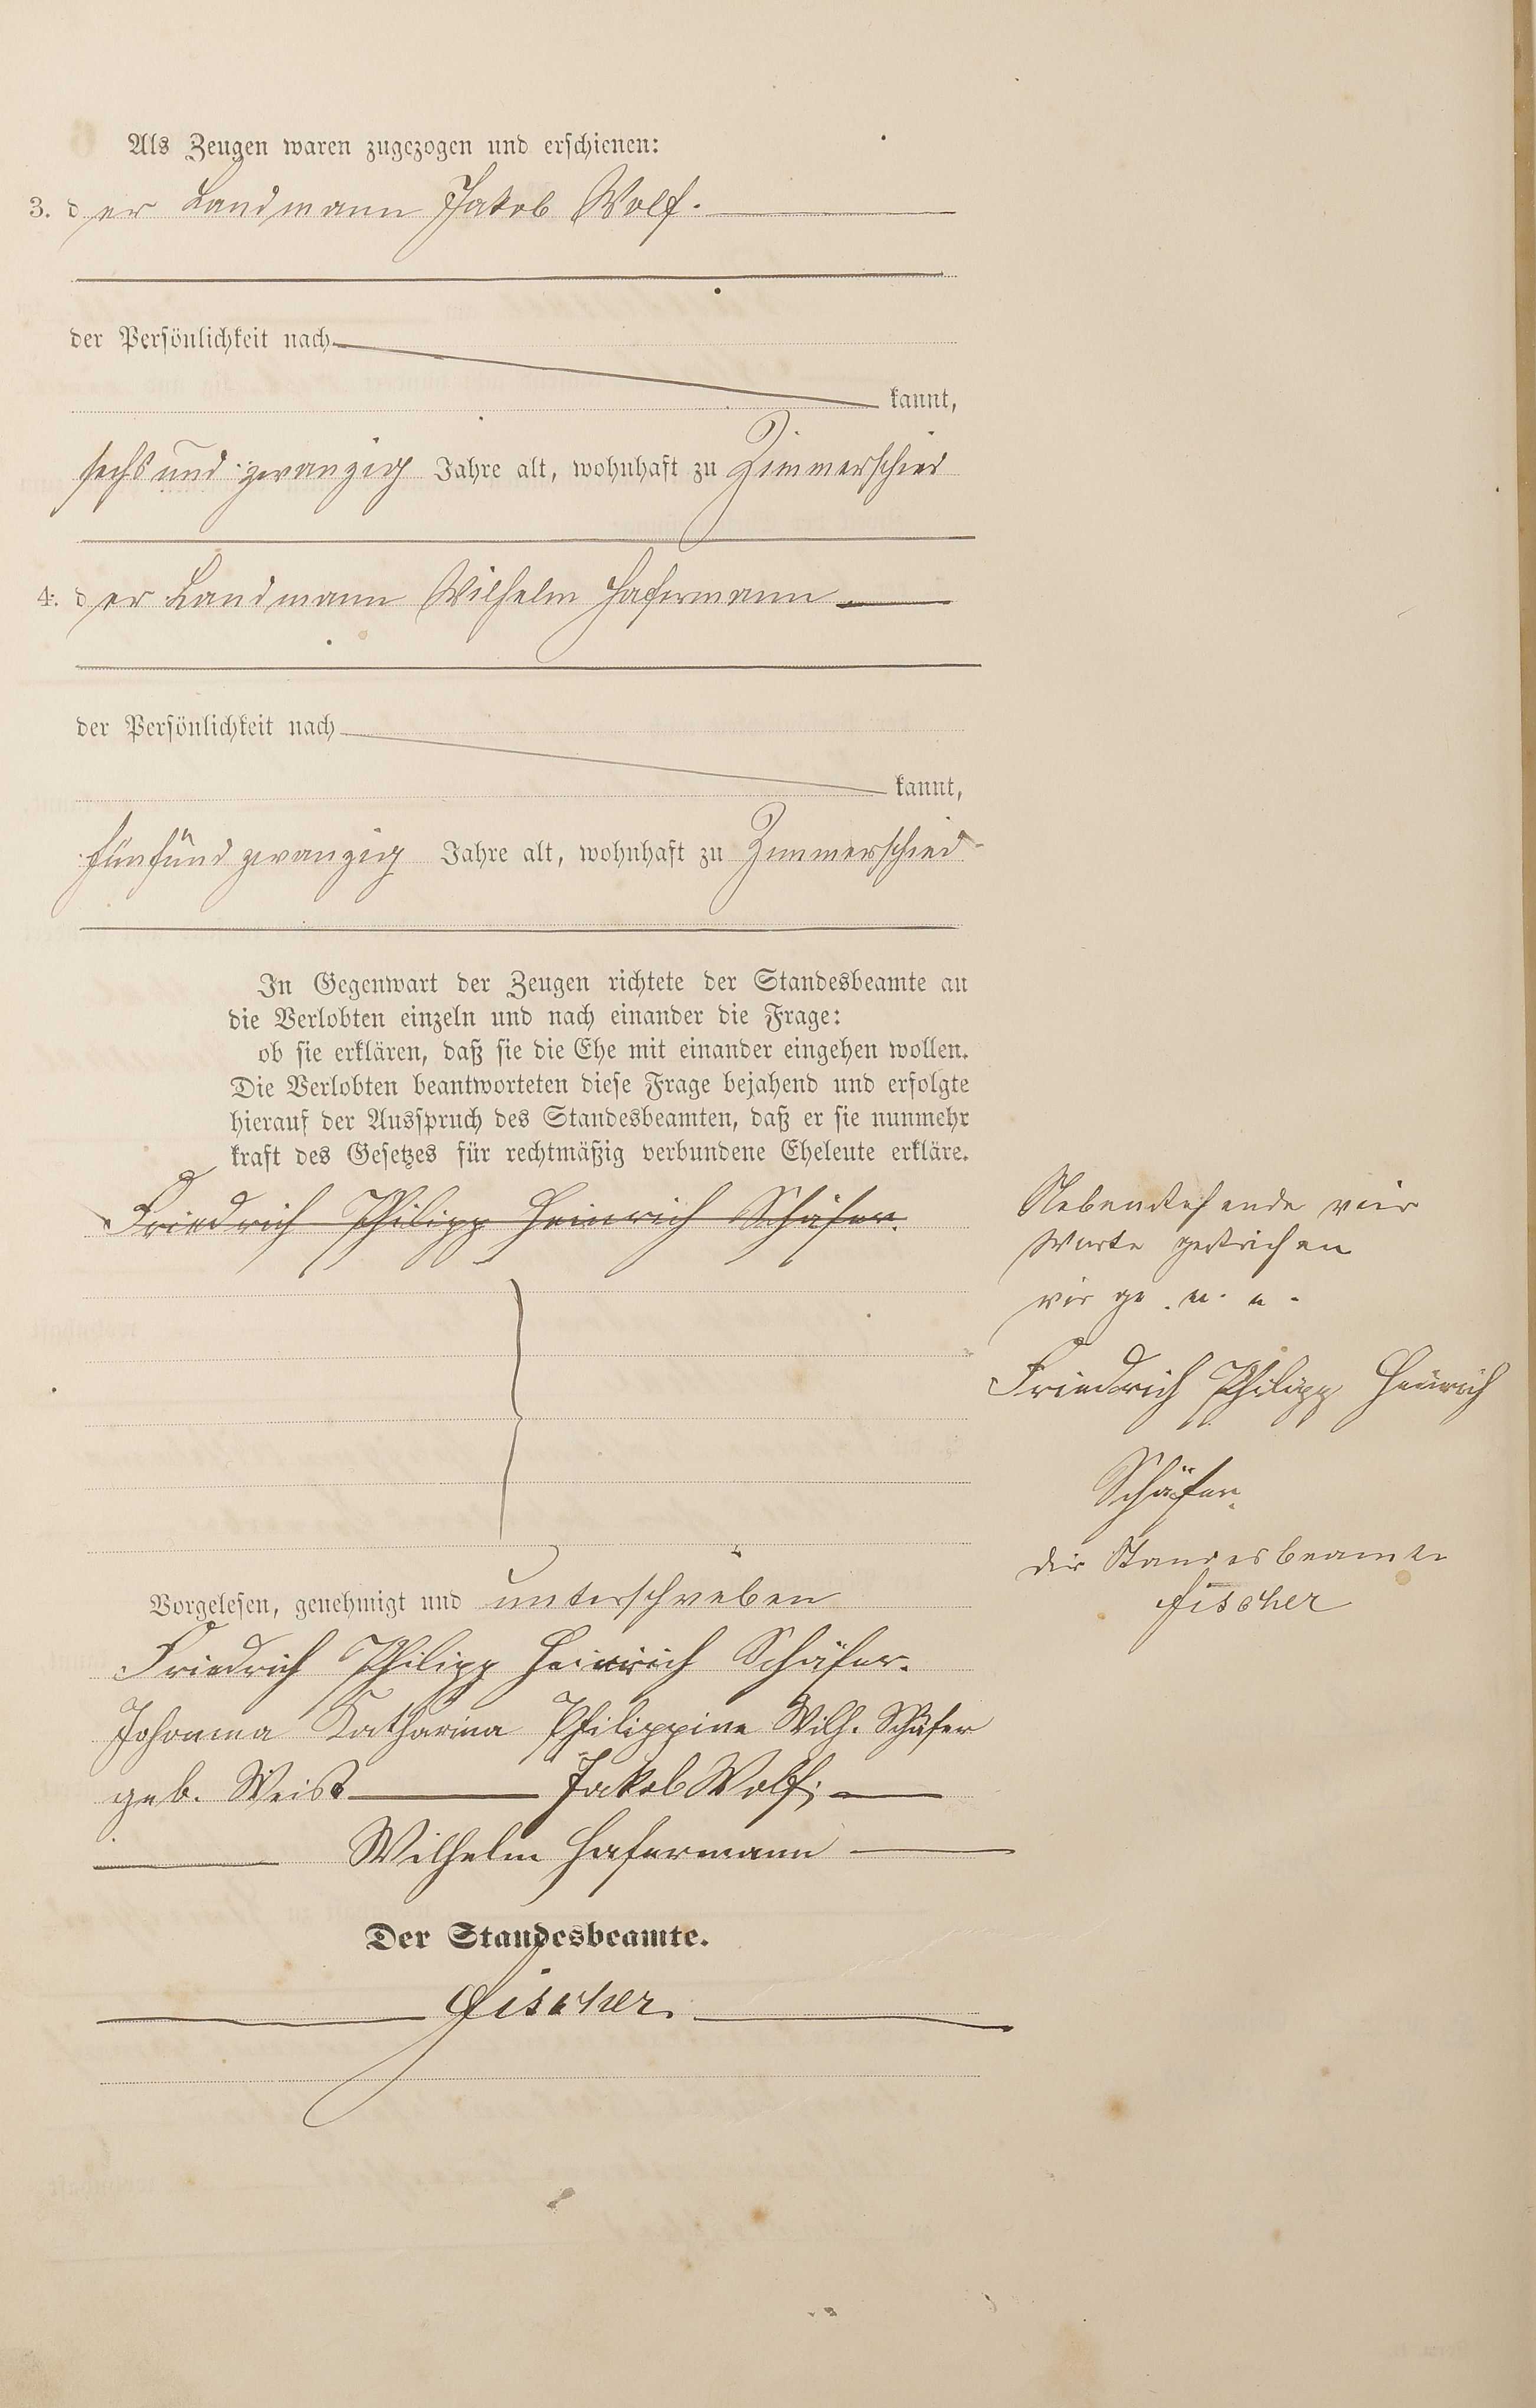 Als Zeugen waren zugezogen und erschienen:
3. der Landmann Jakob Wolf.
der Persönlichkeit nach
kannt,
sechs und zwanzig Jahre alt, wohnhaft zu Zimmerschied
4. der Landmann Wilhelm Hafermann
der Persönlichkeit nach
kannt,
fünfundzwanzig Jahre alt, wohnhaft zu Zimmerschied
In Gegenwart der Zeugen richtete der Standesbeamte an
die Verlobten einzeln und nach einander die Frage:
ob sie erklären, daß sie die Ehe mit einander eingehen wollen.
Die Verlobten beantworteten diese Frage bejahend und erfolgte
hierauf der Ausspruch des Standesbeamten, daß er sie nunmehr
kraft des Gesetzes für rechtmäßig verbundene Eheleute erkläre.
Friedrich Philipp Heinrich Schäfer.
Vorgelesen, genehmigt und unterschrieben
Friedrich Philipp Heinrich Schäfer.
Johanna Katharina Philippine Wilh. Schäfer
geb. Weist Jakob Wolf.
Wilhelm Hafermann
Der Standesbeamte.
Fischer.
Nebenstehende vier
Worte gestrichen
v. g. u. u.
Friedrich Philipp Heinrich
Schäfer.
Der Standesbeamte
Fischer